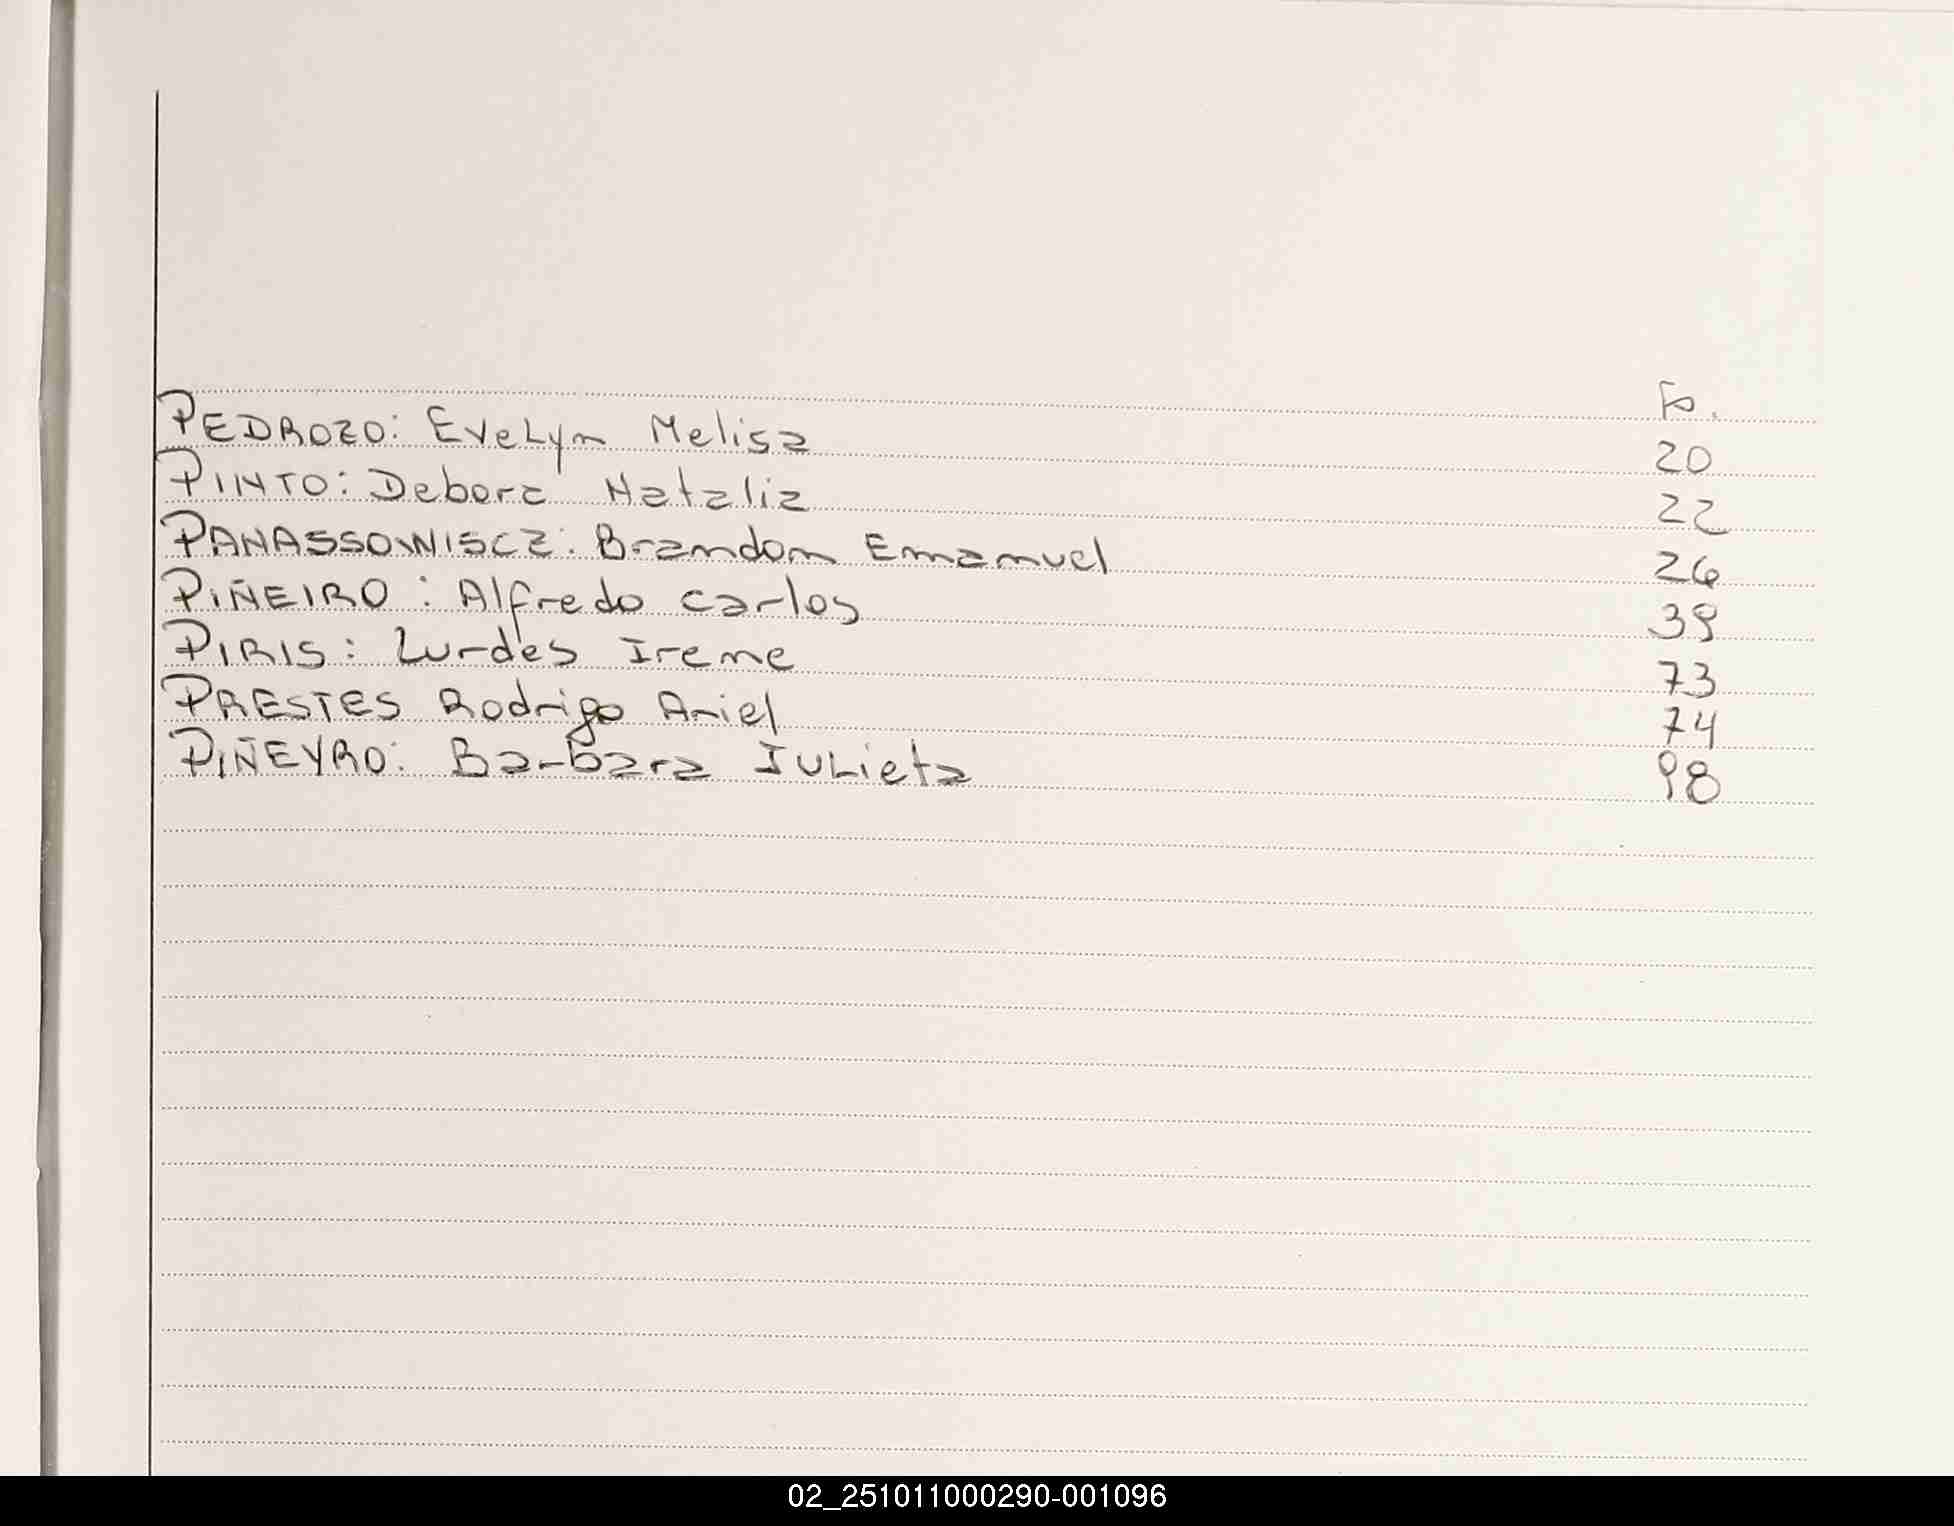 Fo.
PEDROZO: Evelyn Melisa 20
PINTO: Debora Natalia 22
PANASSOWISCZ: Brandon Emanuel 26
PIÑEIRO: Alfredo Carlos 39
PIRIS: Lurdes Irene 73
PRESTES Rodrigo Ariel 74
PIÑEYRO: Barbara Julieta 98
02_251011000290-001096